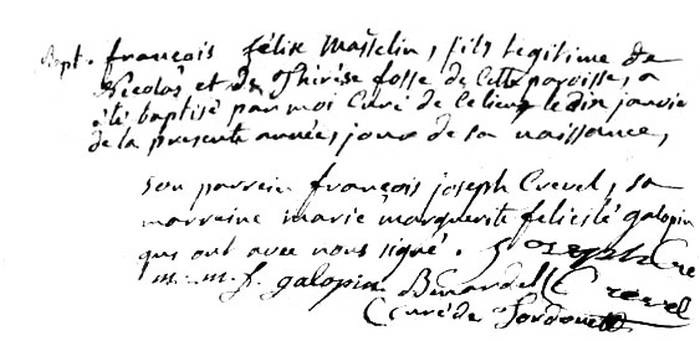 Bapt. françois félix Masselin, fils legitime de
Nicolas et de Thérèse fosse de cette paroisse, a
été baptisé par moi Curé de ce lieu le dix janvie
de la presente année, jour de sa naissance,
son parrein françois joseph Crevel, sa
marraine marie marguerite felicité galopin
qui ont avec nous signé. Joseph Cre
m. m. f. galopin Crevel
Curé de